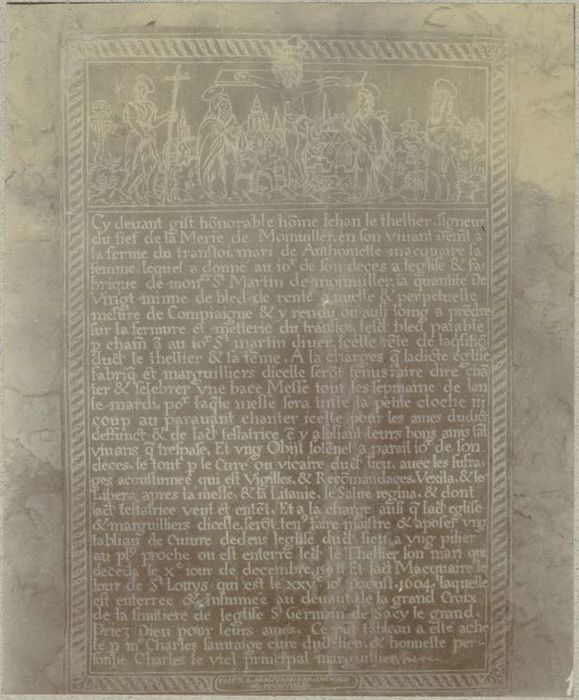 Cy deuant gist hōnorable hōme Iehan le thellier signeur
du fief de la Merie de Moinuiller, en son viuant demt a
la ferme du transloi, mari de Anthoinette macquaire sa
femme, lequel a donne au ior de son deces a leglise & fa-
brique de monsr St Martin de moinuiller, la quantite De
Vingt minne de bled de rente Annuelle & perpetuelle
mesure de Compiaigne & y rendu ou ausi loing a prēdre
sur la fermure et mesterie du transloi lesd bled paiable
p chām ā au ior St martin diuer, icelle rēte de laqsitiō
dudt le thellier & sa fēme. A la charges q ladicte eglise
fabriq et marguilliers dicelle serōt tenus faire dire chā
ter & selebrer vne bace Messe tout les sepmaine de lan
le mardi, por laqle messe sera tinte la petite cloche iij
coup au parauant chanter icelle pour les ames dudict
deffunct & de lad testatrice ē y asosiant leurs bons amis tāt
viuans q trespase, Et vng Obiit solenel a pareil ior de son
deces, le tout p le Cure ou vicaire dudt lieu, auec les sufra-
ges acoustumee qui est Vigilles, & Recōmandaces, Vexila, & le
Libera apres la messe, & la Litanie, le Salue regina, & dont
lad testatrice veut et entēt, Et a la charge ausi q lad eglise
& marguilliers dicelle, serōt tenu faire maistre & aposer vng
tabliau de Cuiure dedens leglise dudt lieu a vng pilier
au pls proche ou est enterre ledt le Thellier son mari qui
deceda le Xe iour de decembre, Et lad Macquaire le
Iour de St Louys qui est le xxve ior daoust, 1604, laquelle
est enterree & inhumee au deuant de la grand Croix
de la simitiere de leglise St Germain de Sacy le grand,
Priez Dieu pour leurs ames. Ce pnt tableau a este ache
te p me Charles sauuaige cure dudt lieu, & honneste per-
sonne Charles le viel principal marguillier